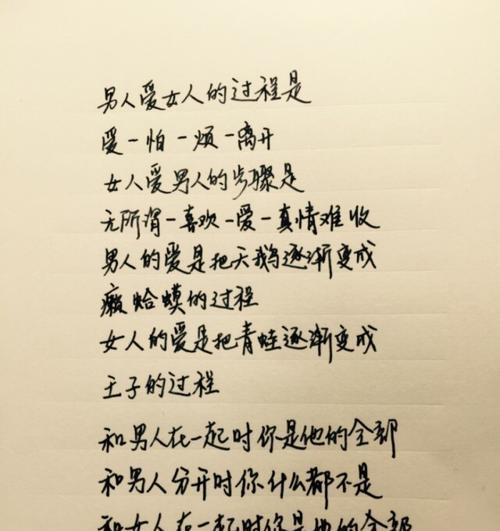 男人爱女人的过程是
爱一怕一烦一离开
女人爱男人的步骤是
无所谓一喜欢一爱一真情难收
男人的爱是把天鹅逐渐变成
癞蛤蟆的过程
女人的爱是把青蛙逐渐变成
王子的过程
和男人在一起时你是他的全部
和男人分开时你什么都不是
和女人在一起时你是她的全部